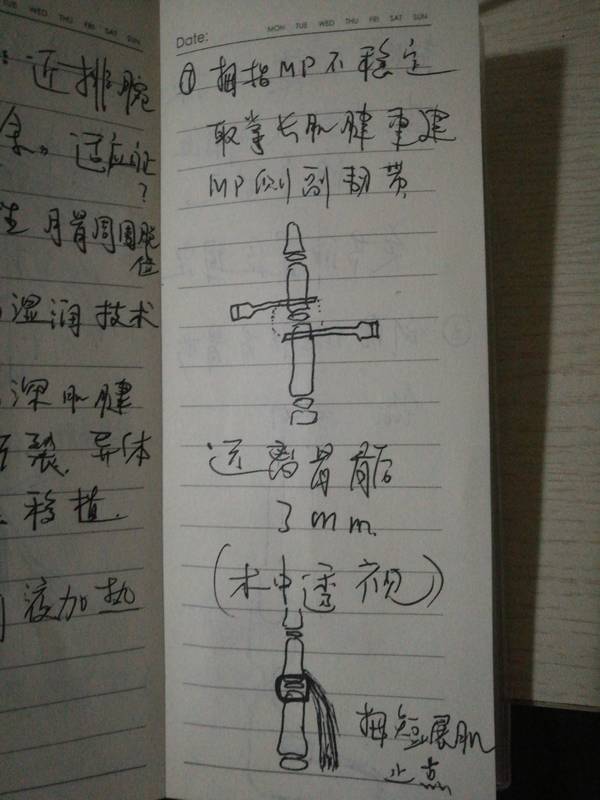 TUE WED THU FRI SAT SUN
近排腕
余。适应证
?
生 月骨周围脱
位
湿润技术
深肌腱
裂.异体
移植.
液加热
Date: MON TUE WED THU FRI SAT SUN
① 拇指MP不稳定
取掌长肌腱重建
MP侧副韧带
远离骨骺
3mm.
(术中透视)
拇短展肌
止点